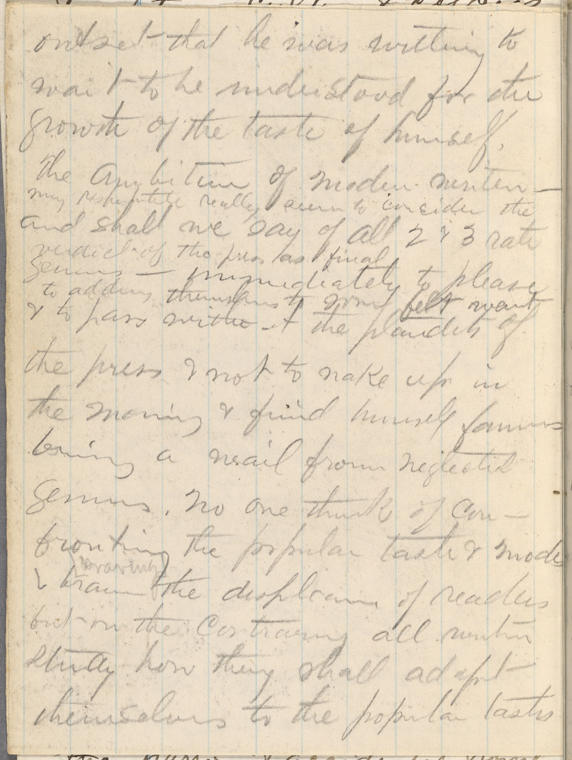 outset that he was willing to
wait to be understood for the
growth of the taste of himself.
The Ambition of modern writers —
may respectfully really seem to consider the
and shall we say of all 2 & 3 rate
verdict of the press as final
genius — immediately to please
to address themselves to some felt want
& to pass without the plaudits of
the press & not to wake up in
the morning & find himself famous
brings a wail from neglected
genius. No one thinks of con-
fronting the popular taste & mode
braving
& the displeasure of readers
but on the contrary all writers
study how they shall adapt
themselves to the popular tastes